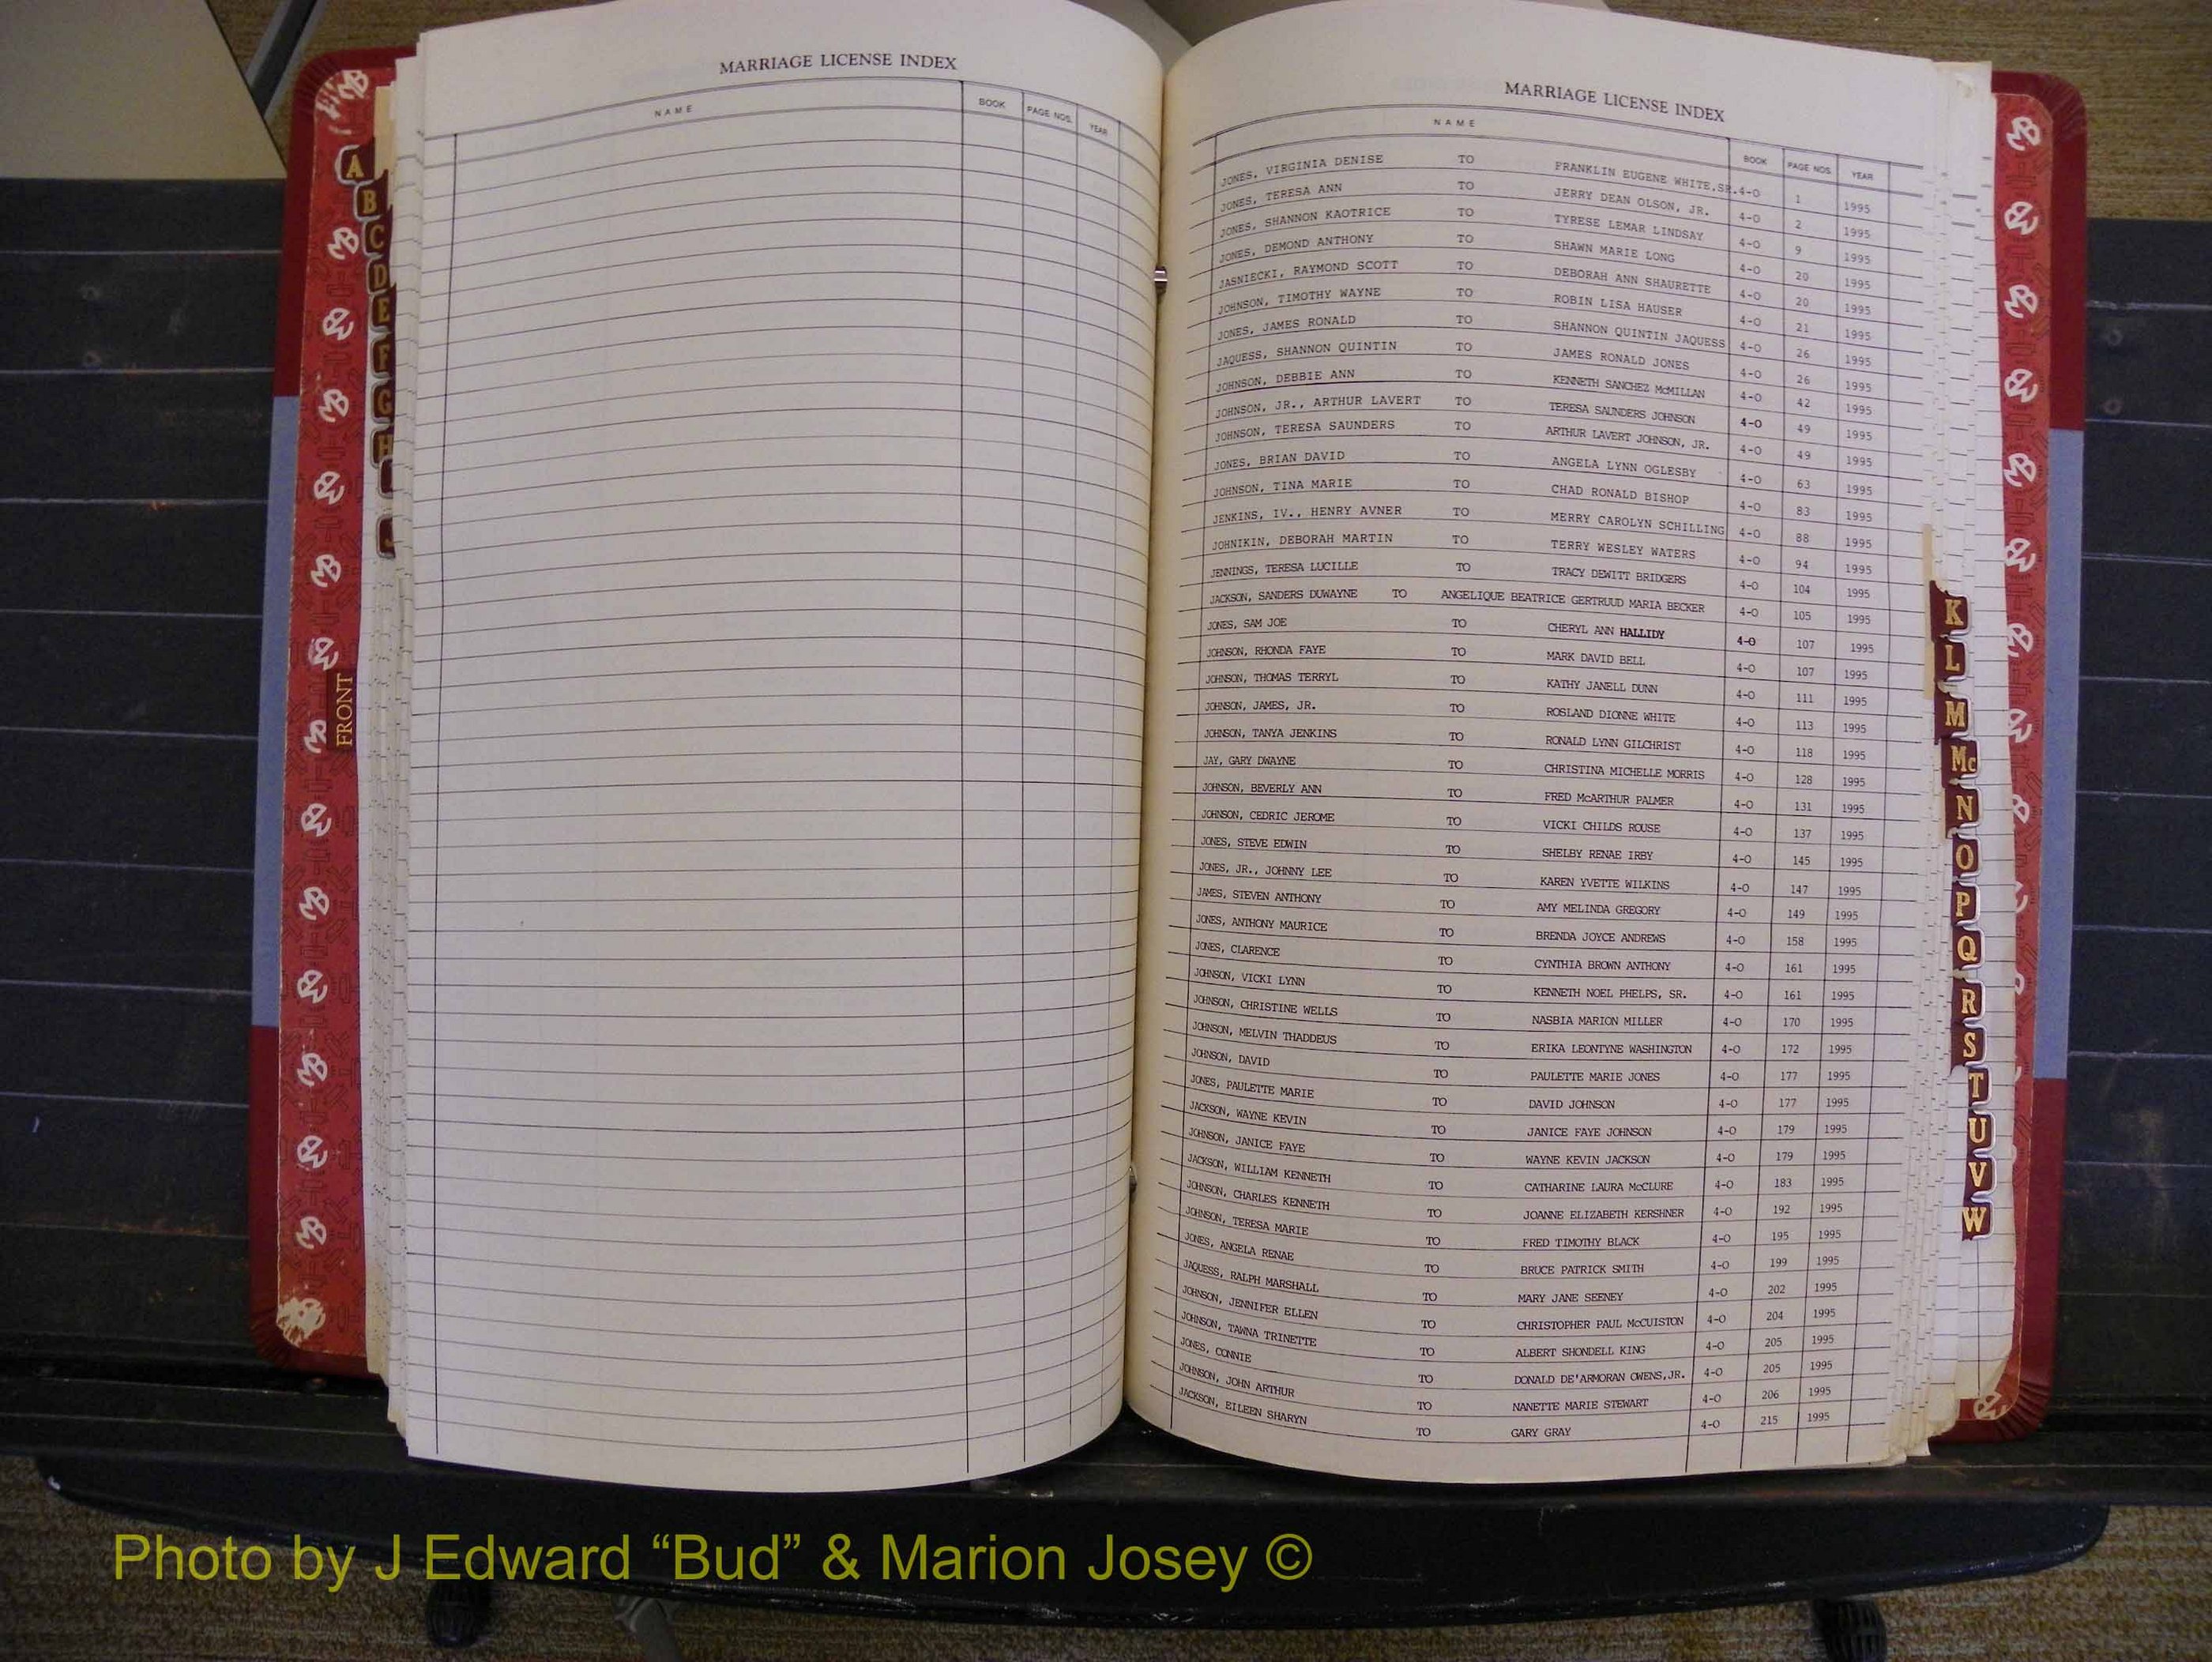 MARRIAGE LICENSE INDEX
NAME BOOK PAGE NOS. YEAR
MARRIAGE LICENSE INDEX
NAME BOOK PAGE NOS. YEAR
JONES, VIRGINIA DENISE TO FRANKLIN EUGENE WHITE,SR. 4-O 1 1995
JONES, TERESA ANN TO JERRY DEAN OLSON, JR. 4-O 2 1995
JONES, SHANNON KAOTRICE TO TYRESE LEMAR LINDSAY 4-O 9 1995
JONES, DEMOND ANTHONY TO SHAWN MARIE LONG 4-O 20 1995
JASNIECKI, RAYMOND SCOTT TO DEBORAH ANN SHAURETTE 4-O 20 1995
JOHNSON, TIMOTHY WAYNE TO ROBIN LISA HAUSER 4-O 21 1995
JONES, JAMES RONALD TO SHANNON QUINTIN JAQUESS 4-O 26 1995
JAQUESS, SHANNON QUINTIN TO JAMES RONALD JONES 4-O 26 1995
JOHNSON, DEBBIE ANN TO KENNETH SANCHEZ McMILLAN 4-O 42 1995
JOHNSON, JR., ARTHUR LAVERT TO TERESA SAUNDERS JOHNSON 4-O 49 1995
JOHNSON, TERESA SAUNDERS TO ARTHUR LAVERT JOHNSON, JR. 4-O 49 1995
JONES, BRIAN DAVID TO ANGELA LYNN OGLESBY 4-O 63 1995
JOHNSON, TINA MARIE TO CHAD RONALD BISHOP 4-O 83 1995
JENKINS, IV., HENRY AVNER TO MERRY CAROLYN SCHILLING 4-O 88 1995
JOHNIKIN, DEBORAH MARTIN TO TERRY WESLEY WATERS 4-O 94 1995
JENNINGS, TERESA LUCILLE TO TRACY DEWITT BRIDGERS 4-O 104 1995
JACKSON, SANDERS DUWAYNE TO ANGELIQUE BEATRICE GERTRUUD MARIA BECKER 4-O 105 1995
JONES, SAM JOE TO CHERYL ANN HALLIDY 4-O 107 1995
JOHNSON, RHONDA FAYE TO MARK DAVID BELL 4-O 107 1995
JOHNSON, THOMAS TERRYL TO KATHY JANELL DUNN 4-O 111 1995
JOHNSON, JAMES, JR. TO ROSLAND DIONNE WHITE 4-O 113 1995
JOHNSON, TANYA JENKINS TO RONALD LYNN GILCHRIST 4-O 118 1995
JAY, GARY DWAYNE TO CHRISTINA MICHELLE MORRIS 4-O 128 1995
JOHNSON, BEVERLY ANN TO FRED McARTHUR PALMER 4-O 131 1995
JOHNSON, CEDRIC JEROME TO VICKI CHILDS ROUSE 4-O 137 1995
JONES, STEVE EDWIN TO SHELBY RENAE IRBY 4-O 145 1995
JONES, JR., JOHNNY LEE TO KAREN YVETTE WILKINS 4-O 147 1995
JAMES, STEVEN ANTHONY TO AMY MELINDA GREGORY 4-O 149 1995
JONES, ANTHONY MAURICE TO BRENDA JOYCE ANDREWS 4-O 158 1995
JONES, CLARENCE TO CYNTHIA BROWN ANTHONY 4-O 161 1995
JOHNSON, VICKI LYNN TO KENNETH NOEL PHELPS, SR. 4-O 161 1995
JOHNSON, CHRISTINE WELLS TO NASBIA MARION MILLER 4-O 170 1995
JOHNSON, MELVIN THADDEUS TO ERIKA LEONTYNE WASHINGTON 4-O 172 1995
JOHNSON, DAVID TO PAULETTE MARIE JONES 4-O 177 1995
JONES, PAULETTE MARIE TO DAVID JOHNSON 4-O 177 1995
JACKSON, WAYNE KEVIN TO JANICE FAYE JOHNSON 4-O 179 1995
JOHNSON, JANICE FAYE TO WAYNE KEVIN JACKSON 4-O 179 1995
JACKSON, WILLIAM KENNETH TO CATHARINE LAURA McCLURE 4-O 183 1995
JOHNSON, CHARLES KENNETH TO JOANNE ELIZABETH KERSHNER 4-O 192 1995
JOHNSON, TERESA MARIE TO FRED TIMOTHY BLACK 4-O 195 1995
JONES, ANGELA RENAE TO BRUCE PATRICK SMITH 4-O 199 1995
JAQUESS, RALPH MARSHALL TO MARY JANE SEENEY 4-O 202 1995
JOHNSON, JENNIFER ELLEN TO CHRISTOPHER PAUL McCUISTON 4-O 204 1995
JOHNSON, TAWNA TRINETTE TO ALBERT SHONDELL KING 4-O 205 1995
JONES, CONNIE TO DONALD DE'ARMORAN OWENS,JR. 4-O 205 1995
JOHNSON, JOHN ARTHUR TO NANETTE MARIE STEWART 4-O 206 1995
JACKSON, EILEEN SHARYN TO GARY GRAY 4-O 215 1995
A
B
C
D
E
F
G
H
J
FRONT
K
L
M
Mc
N
O
P
Q
R
S
T
U
V
W
Photo by J Edward “Bud” & Marion Josey ©